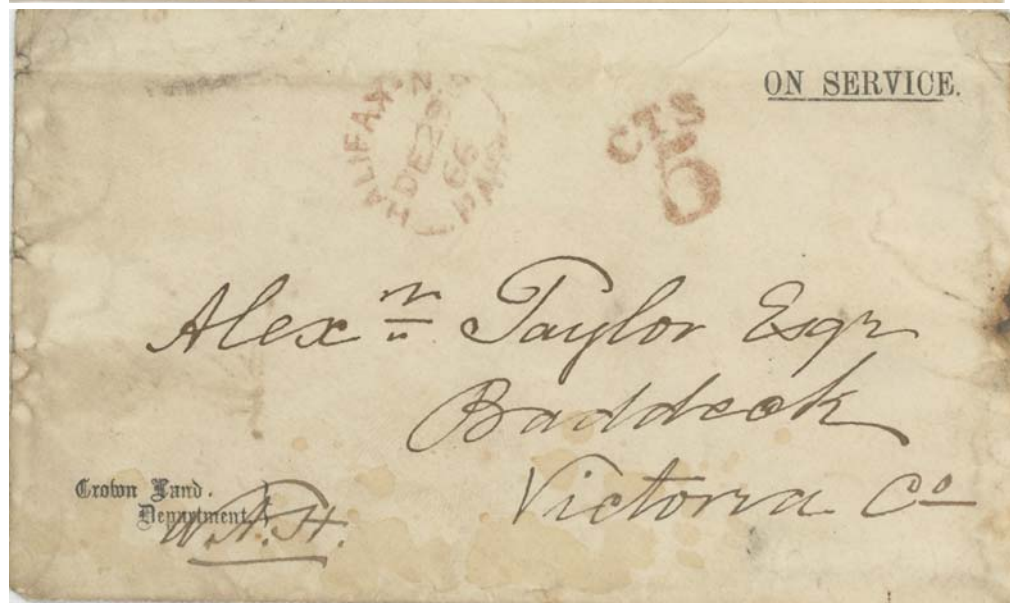 ON SERVICE.
HALIFAX N.S
DE
66
PAID
CTS
5
Alexr Taylor Esqr
Baddeck
Victoria Co
Crown Land.
Department.